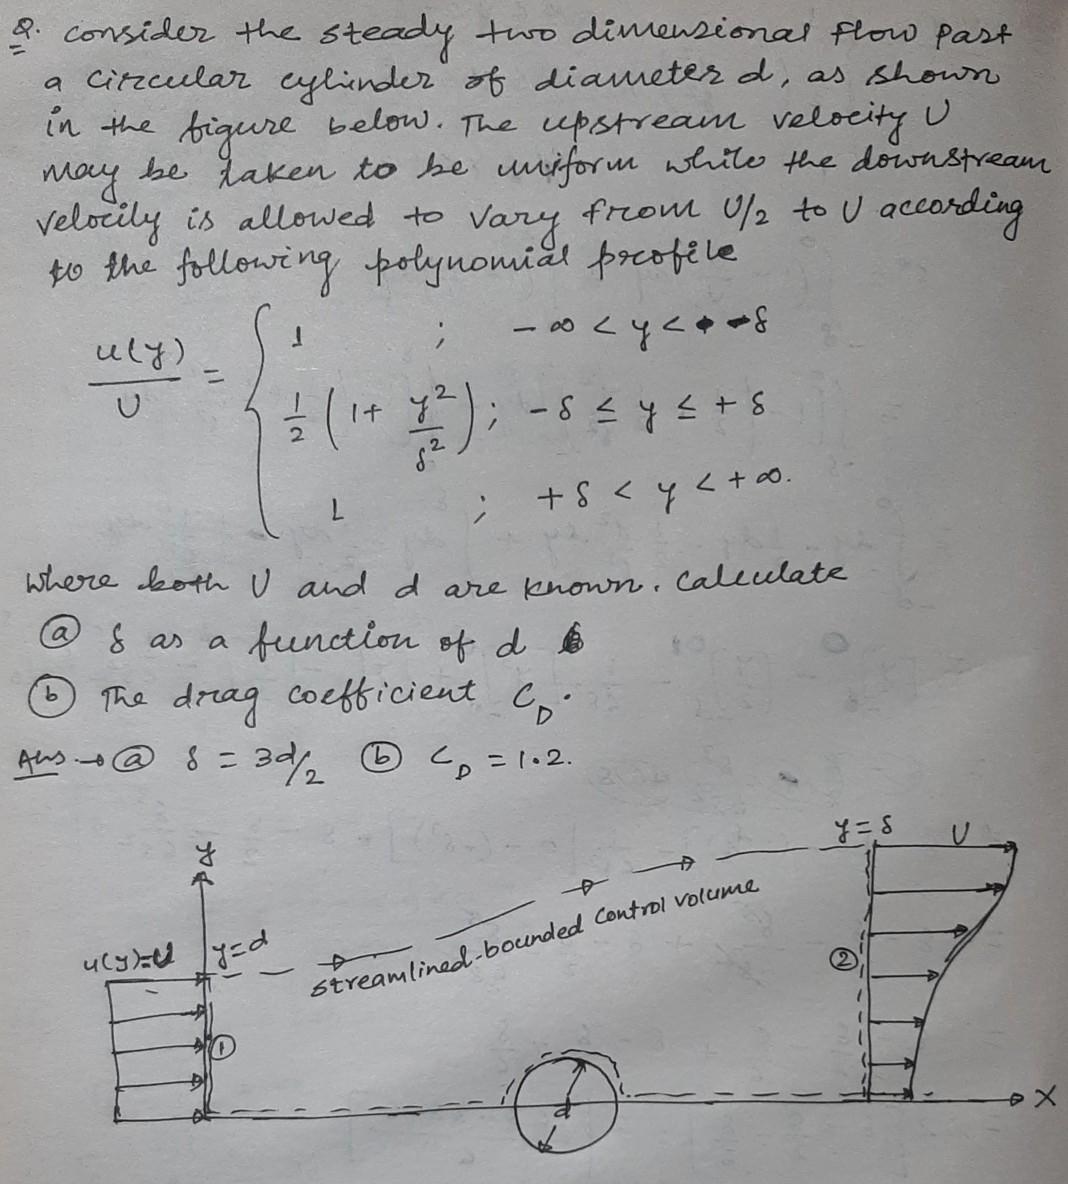 Q. consider the steady two dimensional flow past
a circular cylinder of diameter d, as shown
in the figure below. The upstream velocity U
may be taken to be uniform while the downstream
velocity is allowed to vary from U/2 to U according
to the following polynomial profile
u(y)/U = { 1 ; -∞ < y < -δ
1/2 (1 + y²/δ²) ; -δ ≤ y ≤ +δ
1 ; +δ < y < +∞.
where both U and d are known. Calculate
(a) δ as a function of d
(b) The drag coefficient C_D.
Ans → (a) δ = 3d/2 (b) C_D = 1.2.
y=δ U
y
u(y)=U y=d
streamlined-bounded control volume
②
①
d
X